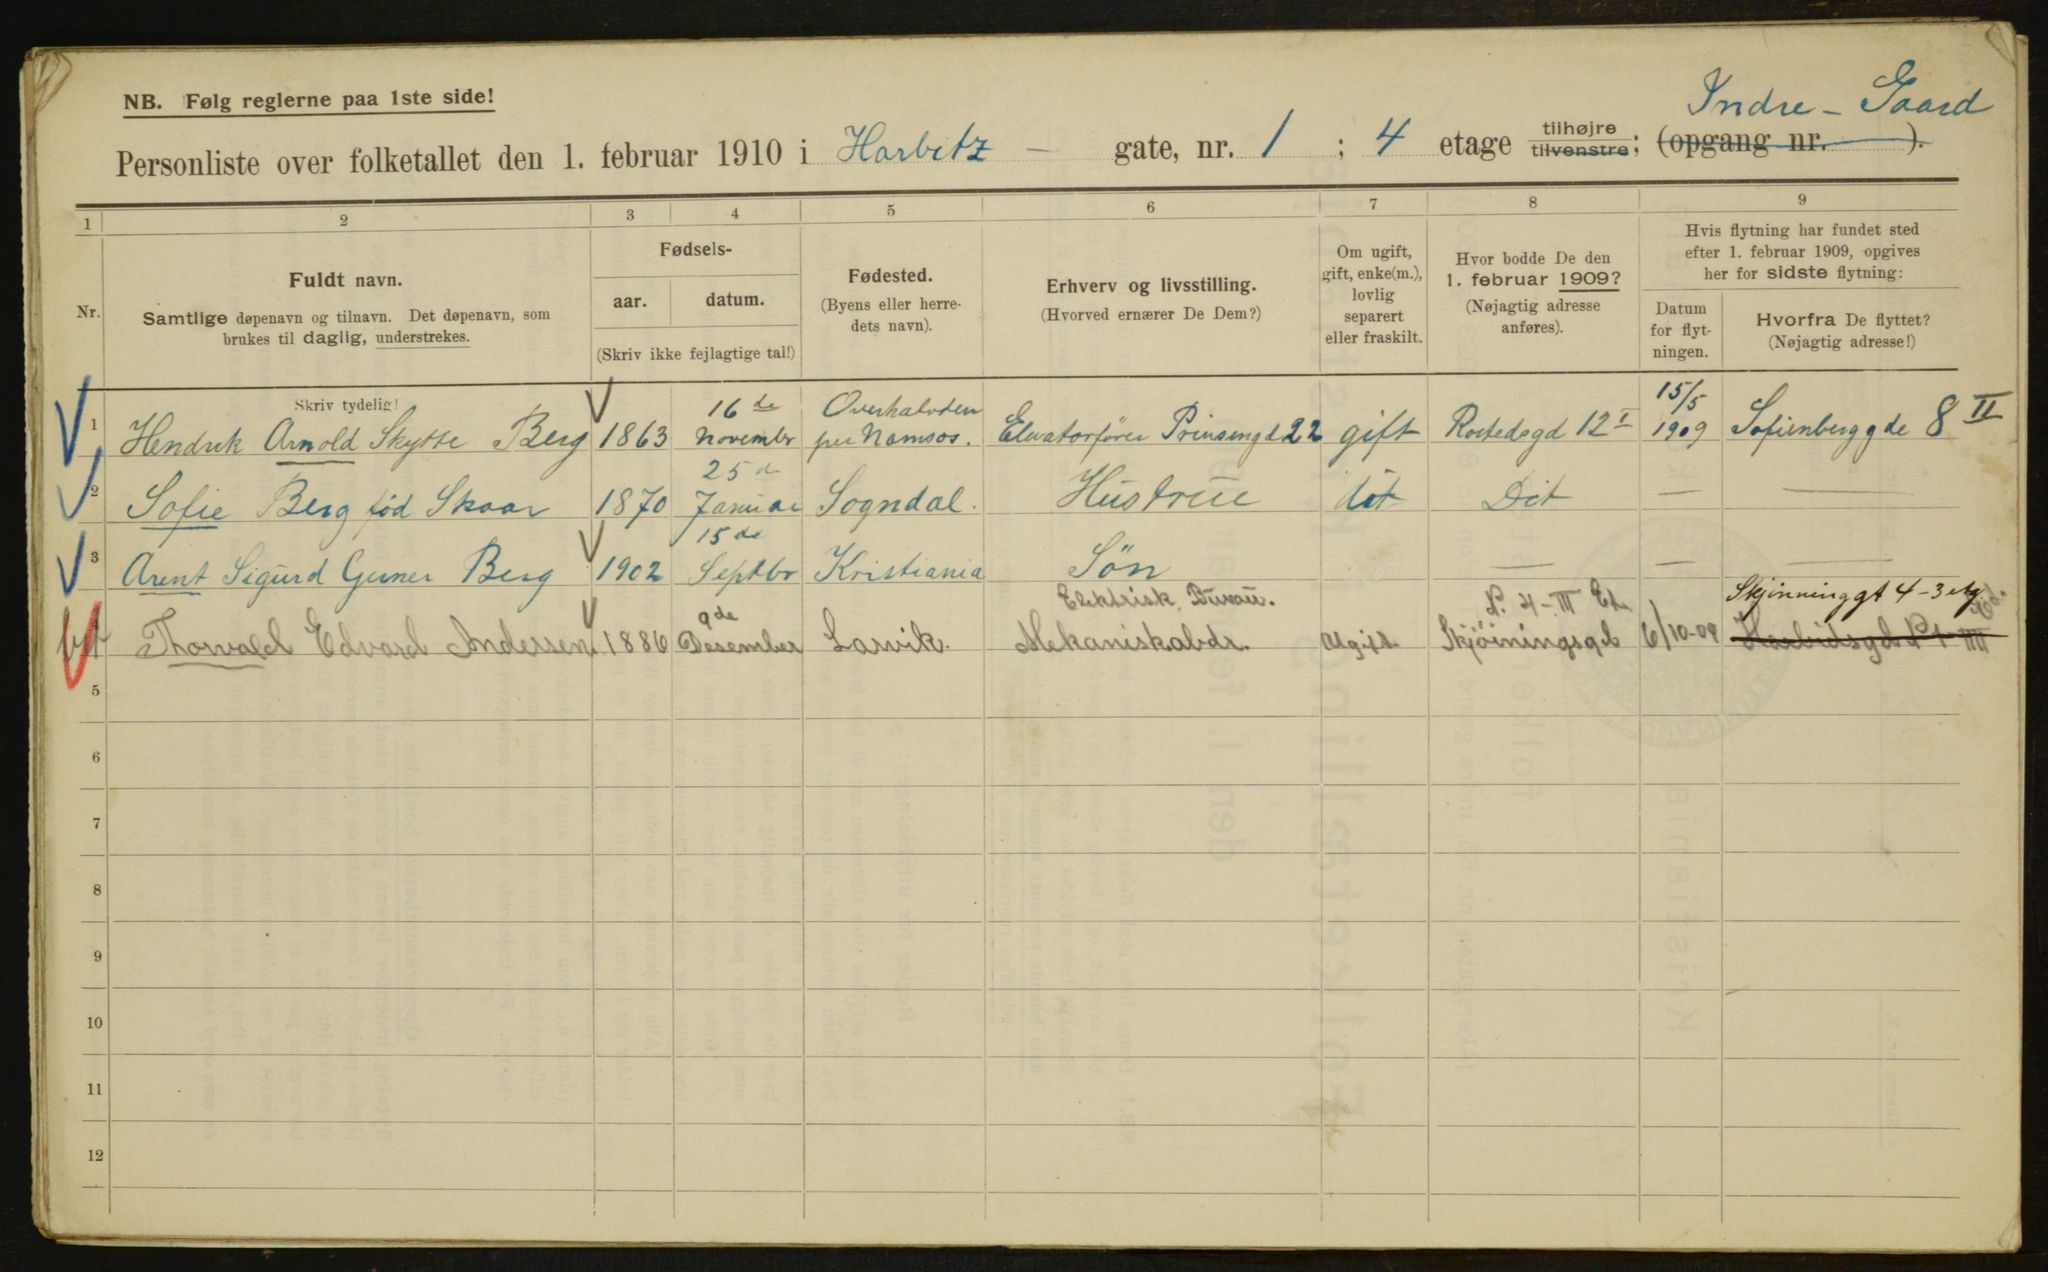 NB. Følg reglerne paa 1ste side!
Indre - Gaard
Personliste over folketallet den 1. februar 1910 i Harbitz - gate, nr. 1 ; 4 etage tilhøjre tilvenstre; (opgang nr. ).
1 2 3 4 5 6 7 8 9
Nr.
Fuldt navn.
Samtlige døpenavn og tilnavn. Det døpenavn, som
brukes til daglig, understrekes.
Fødsels-
aar. datum.
(Skriv ikke fejlagtige tal!)
Fødested.
(Byens eller herre-
dets navn).
Erhverv og livsstilling.
(Hvorved ernærer De Dem?)
Om ugift,
gift, enke(m.),
lovlig
separert
eller fraskilt.
Hvor bodde De den
1. februar 1909?
(Nøjagtig adresse
anføres).
Hvis flytning har fundet sted
efter 1. februar 1909, opgives
her for sidste flytning:
Datum
for flyt-
ningen.
Hvorfra De flyttet?
(Nøjagtig adresse!)
Skriv tydelig!
16 de Overhalvden 15/5
1 Hendrik Arnold Skytte Berg 1863 Novembr per Namsos. Elevatorfører Prinsensgd 22 gift Rostedsgd 12 I 1909 Sofienberggde 8 II
25 d
2 Sofie Berg fød Skaar 1870 Januar Sogndal. Hustrue dit Dit — —
15 de
3 Arent Sigurd Gerner Berg 1902 Septbr Kristiania Søn — — —
9de Elektrisk Bureau. No. 4 - III Et. Skjinninggt 4 - 3 etg.
4 Thorvald Edvard Andersen 1886 Desember Larvik. Mekaniskabdr. Ugift Skjøiningsgd 6/10-09
5
6
7
8
9
10
11
12